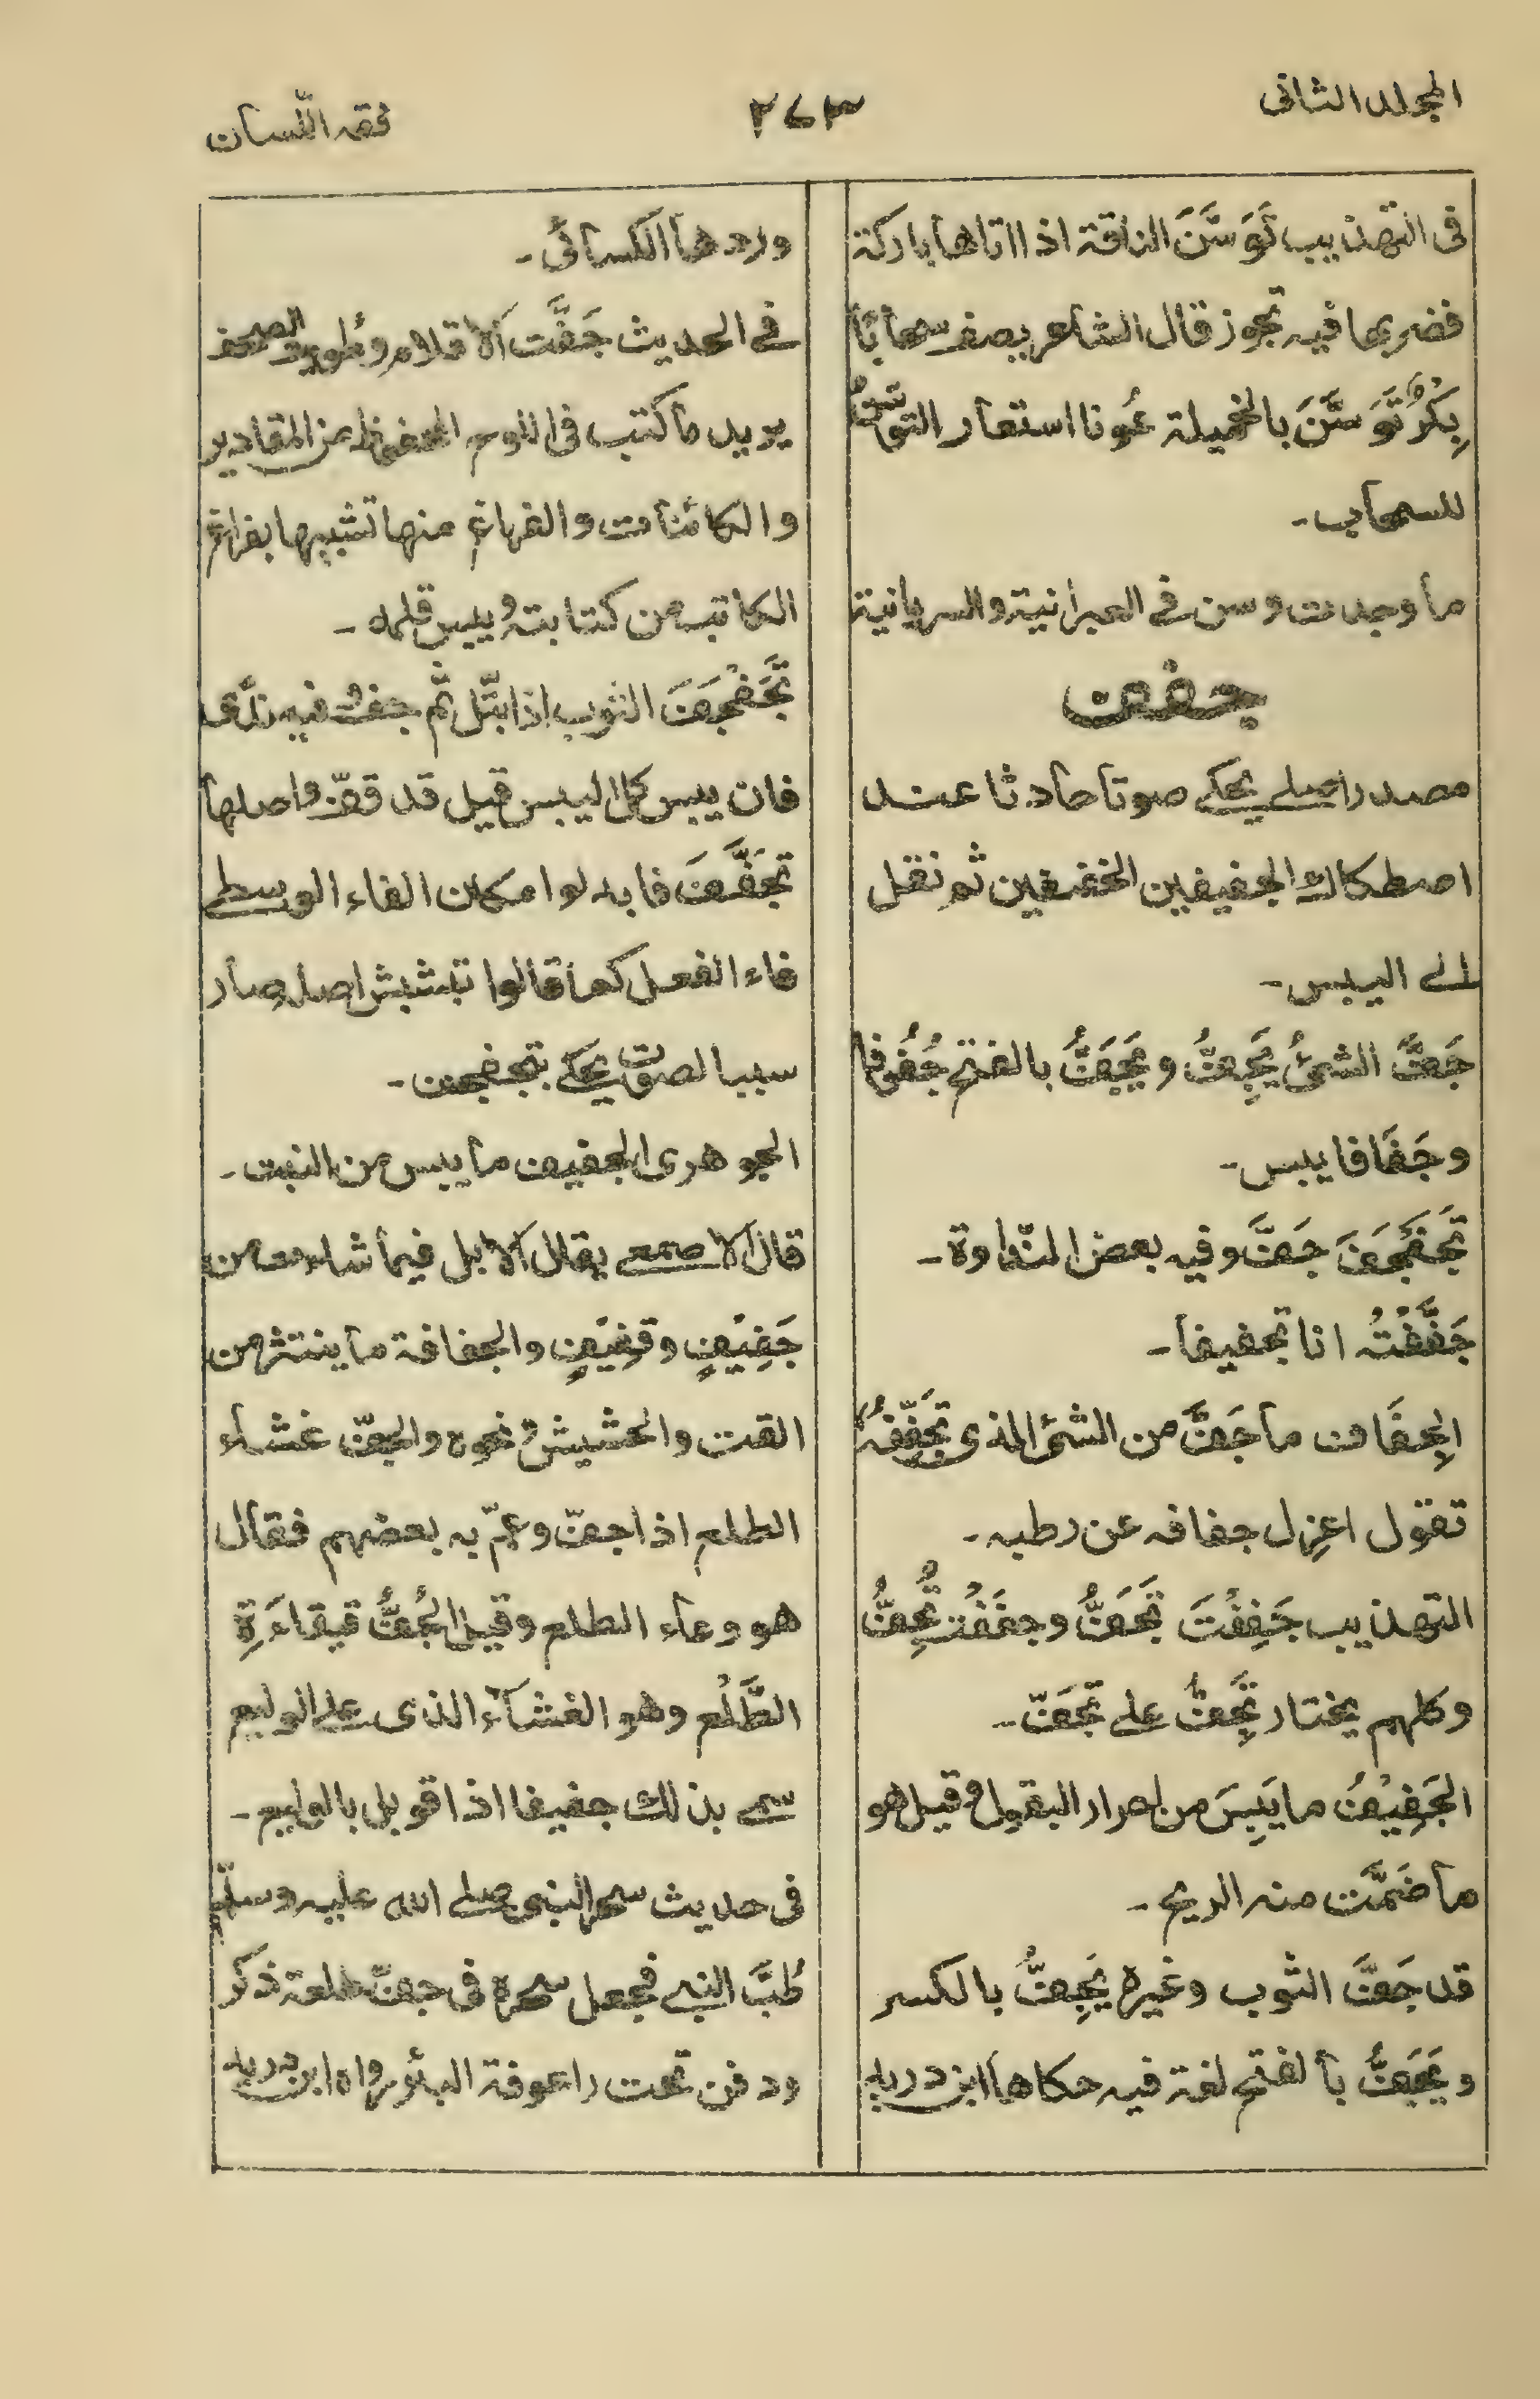 المجلد الثانى
٢٧٣
فقه اللّسان
فى التهذيب تَوَسَّنَ الناقة اذا اتاها باركة
فضربها فيه تجوز قال الشاعر يصف سحابًا
بِكْرٌ تَوَسَّنَ بالخميلة عُونا استعار التوسّن
للسحاب۔
ما وجدت وسن فے العبرانية والسريانية
جفف
مصدر اصلے يحكے صوتا حادثا عند
اصطكاك الجفيفين الخفيفين ثم نقل
الے اليبس۔
جَفَّ الشئُ يَجِفُّ ويَجَفُّ بالفتح جُفُوفا
وجَفَافا يبس۔
تَجَفْجَفَ جَفَّ وفيه بعض النّداوة۔
جَفَّفْتُه انا تجفيفا۔
الجِفَافت ما جَفَّ من الشئ الذى تُجَفِّفُهُ
تقول اعزِل جفافه عن رطبه۔
التهذيب جَفِفْتَ تَجَفُّ وجفَفْتَ تَجِفُّ
وكلهم يختار تَجِفُّ على تَجَفّ۔
الجَفِيْفُ ما يَبِسَ من احرار البقول وقيل هو
ما ضَمَّت منه الريح۔
قد جَفَّ الثوب وغيره يَجِفُّ بالكسر
ويَجَفُّ بالفتح لغة فيه حكاها ابن دريد
وردها الكسائى۔
فے الحديث جَفَّت الاقلام وطُويت الصحف
يريد ما كتب فى اللوح المحفوظ من المقادير
والكائنات والفراغ منها تشبيها بفراغ
الكاتب من كتابته ويبس قلمه۔
تَجَفْجَفَ الثوب اذا ابتّل ثم جف وفيه ندًى
فان يبس كل اليبس قيل قد قفّ واصلها
تجَفَّفَ فابدلوا مكان الفاء الوسطے
فاء الفعل كما قالوا تبشبش اصله صار
سببا لصوت يحكے بتجفجف۔
الجوهرى الجفيف ما يبس من النبت۔
قال الاصمعے يقال الابل فيما شاءت من
جَفِيْفٍ وقَفِيْفٍ والجفافة ما ينتثر من
القت والحشيش ونحوه والجفّ غشاء
الطلع اذا جفّ وعمّ به بعضهم فقال
هو وعاء الطلع وقيل الجُفُّ قيقاءَةِ
الطَّلْع وهو الغشاء الذى على الوليع
سمے بذلك جفيفا اذا قوبل بالوليع۔
فى حديث سحر النبى صلے الله عليه وسلّم
طُبَّ النبے فجعل سحره فى جفّ طلعة ذَكَر
ودفن تحت راعوفة البئر رواه ابن دريد